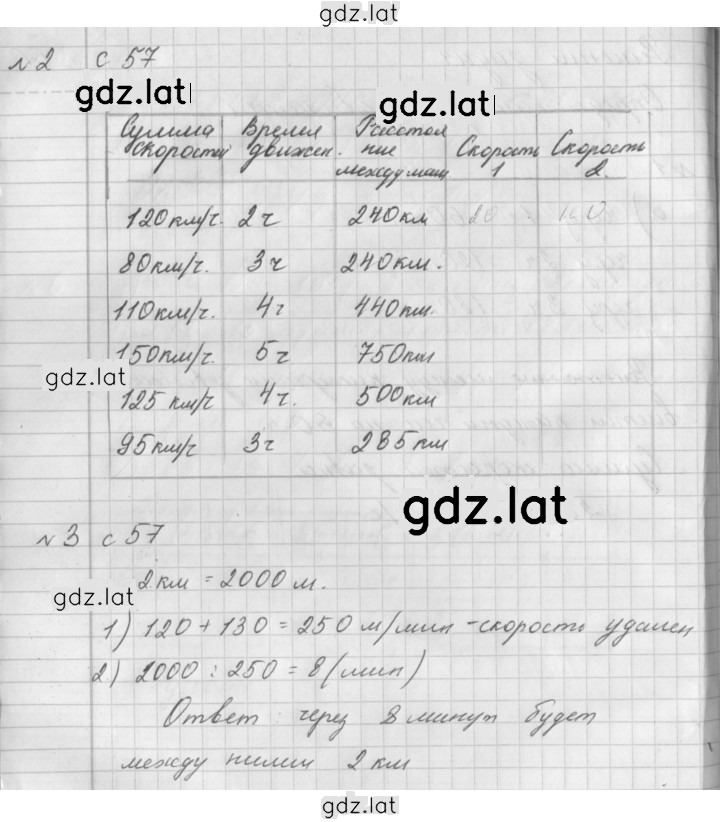 gdz.lat
№2 с 57
gdz.lat
gdz.lat
Сумма скоростей Время движен. Расстояние между маш Скорость 1 Скорость 2.
120км/ч. 2ч 240км
80км/ч. 3ч 240км.
110км/ч. 4ч 440км
150км/ч. 5ч 750км
gdz.lat
125 км/ч 4ч. 500км
95км/ч 3ч 285км
gdz.lat
№3 с 57
2км = 2000м.
gdz.lat
1) 120+130=250 м/мин -скорость удален
2) 2000:250=8(мин)
Ответ через 8 минут будет
между ними 2 км
gdz.lat